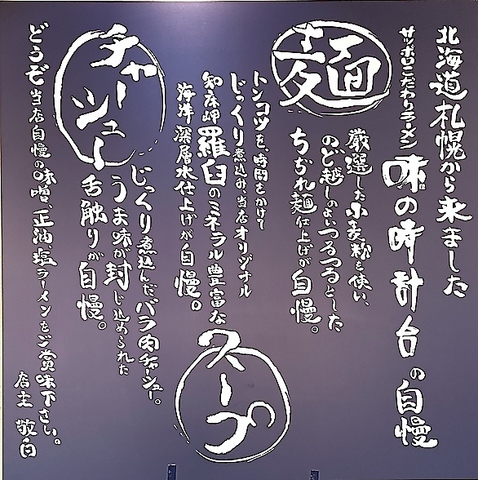 北海道札幌から来ました
サッポロこだわりラーメン 味の時計台の自慢
麺
厳選した小麦粉を使い、
のど越しのよいつるつるとした
ちぢれ麺仕上げが自慢。
スープ
トンコツを、時間をかけて
じっくり煮込み、当店オリジナル
知床岬羅臼のミネラル豊富な
海洋深層水仕上げが自慢。
チャーシュー
じっくり煮込んだバラ肉チャーシュー。
うま味が封じ込められた
舌触りが自慢。
どうぞ当店自慢の味噌、正油、塩ラーメンをご賞味下さい。
店主 敬白